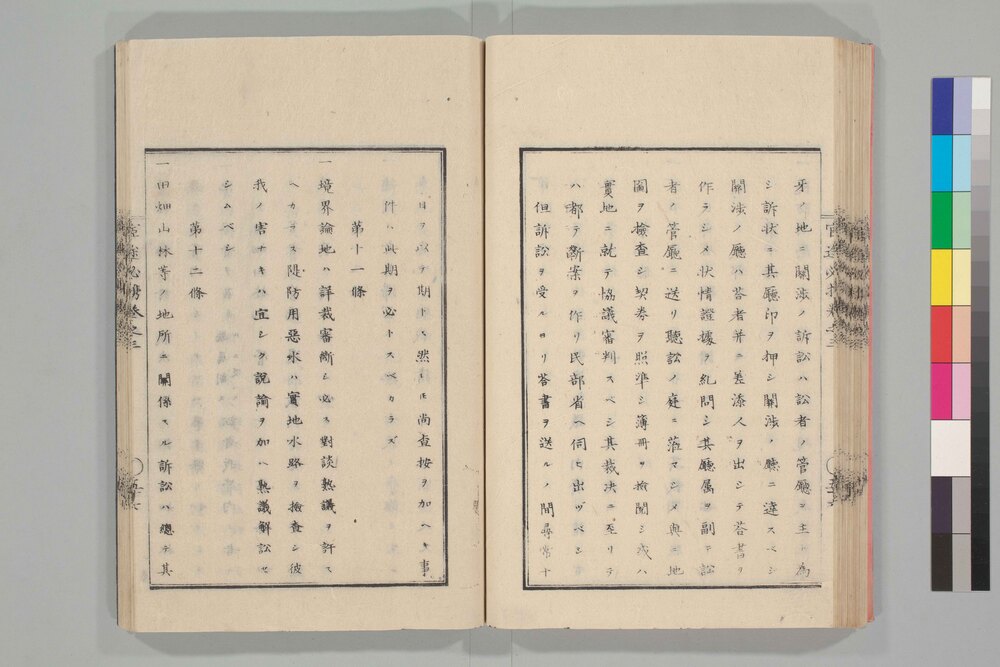 牙ノ地ニ關渉ノ訴訟ハ訟者ノ管廳ヲ主ト為
シ訴状ニ其廳印ヲ押シ關渉ノ廳ニ達スベシ
關渉ノ廳ハ答者并ニ差添人ヲ出シテ答書ヲ
作ラシメ状情證據ヲ糺問シ其廳屬ヲ副テ訟
者ノ管廳ニ送リ聽訟ノ庭ニ蒞マシメ與ニ地
圖ヲ檢査シ契劵ヲ照準シ簿冊ヲ撿閲シ或ハ
實地ニ就テ協議審判スベシ其裁決ニ至リテ
ハ都テ斷案ヲ作リ民部省ヘ伺ヒ出ヅベシ
但訴訟ヲ受ルヨリ答書ヲ送ルノ間尋常十
日ヲ以テ期トス然レ𪜈尚査按ヲ加ヘキ事
件ハ此期ヲ必トスベカラズ
第十一條
一境界論地ハ詳裁審斷シ必ス對談熟議ヲ許ス
ヘカラス隄防用惡水ハ實地水路ヲ撿査シ彼
我ノ害ナキハ宜シク説諭ヲ加ヘ熟議解訟セ
シムベシ
第十二條
一田畑山林等ノ地所ニ關係スル訴訟ハ總テ其